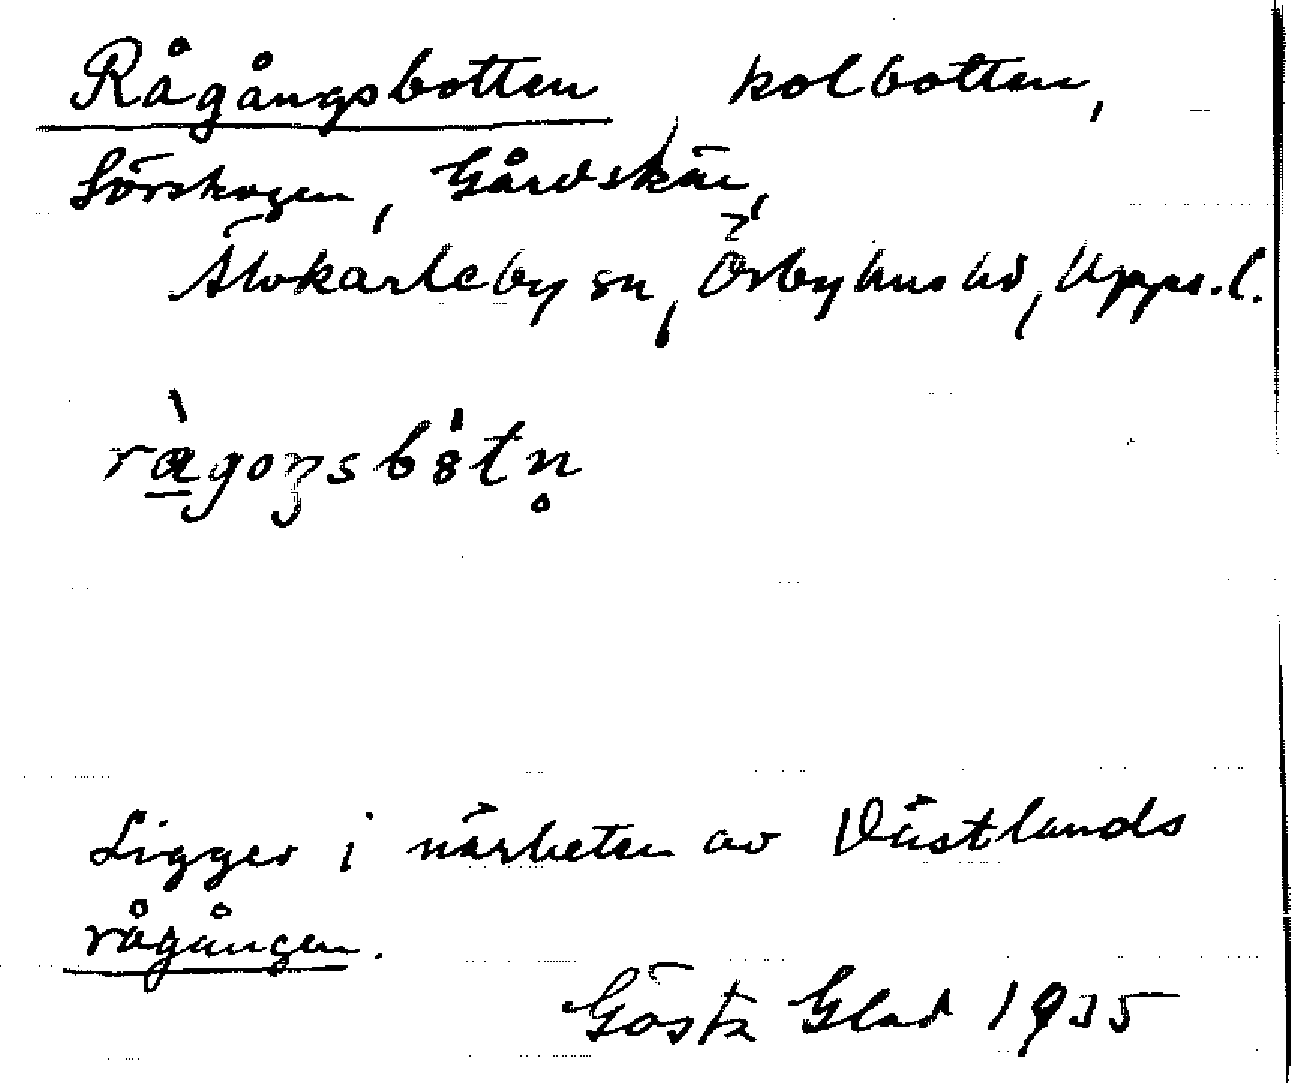 Rågångsbotten kolbotten,
Sörskogen, Gårdskär,
Älvkarleby sn, Örbyhus hd, Upps.l.
Ligger i närheten av Västlands
rågången.
Gösta Glad 1935